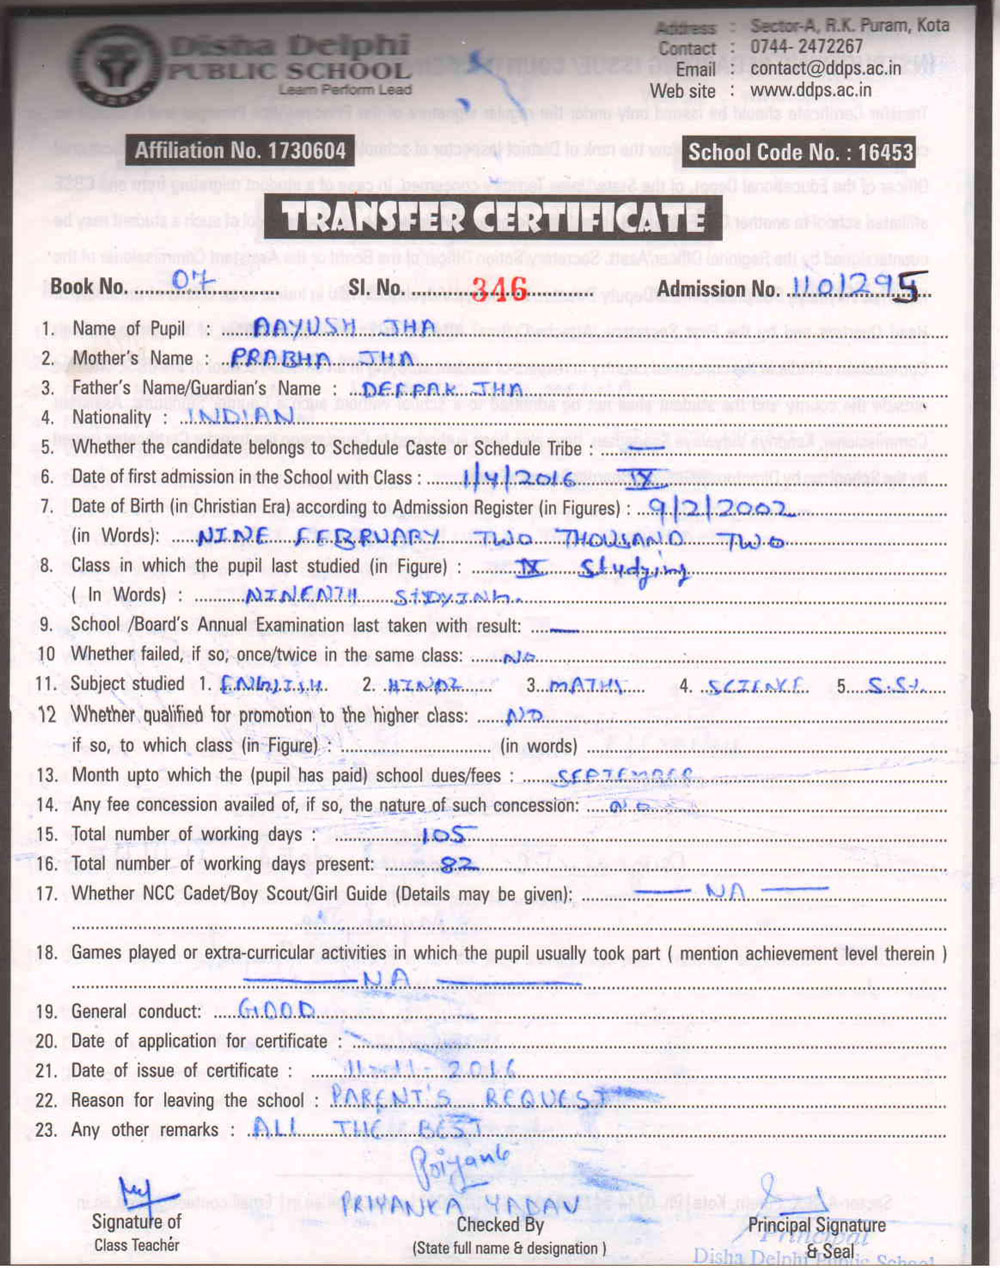 Disha Delphi
PUBLIC SCHOOL
Learn Perform Lead
DDPS
Address : Sector-A, R.K. Puram, Kota
Contact : 0744- 2472267
Email : contact@ddps.ac.in
Web site : www.ddps.ac.in
Affiliation No. 1730604
School Code No. : 16453
TRANSFER CERTIFICATE
Book No. 07 Sl. No. 346 Admission No. 1101295
1. Name of Pupil : AAYUSH JHA
2. Mother's Name : PRABHA JHA
3. Father's Name/Guardian's Name : DEEPAK JHA
4. Nationality : INDIAN
5. Whether the candidate belongs to Schedule Caste or Schedule Tribe : —
6. Date of first admission in the School with Class : 1/4/2016 IX
7. Date of Birth (in Christian Era) according to Admission Register (in Figures) : 9/2/2002
(in Words): NINE FEBRUARY TWO THOUSAND TWO
8. Class in which the pupil last studied (in Figure) : IX Studying
( In Words) : NINENTH STDYING.
9. School /Board's Annual Examination last taken with result: —
10 Whether failed, if so, once/twice in the same class: NO
11. Subject studied 1. ENGLISH 2. HINDI 3. MATHS 4. SCIENCE 5. S.St.
12 Whether qualified for promotion to the higher class: NO
if so, to which class (in Figure) : (in words)
13. Month upto which the (pupil has paid) school dues/fees : SEPTEMBER
14. Any fee concession availed of, if so, the nature of such concession: NO
15. Total number of working days : 105
16. Total number of working days present: 82
17. Whether NCC Cadet/Boy Scout/Girl Guide (Details may be given): — NA —
18. Games played or extra-curricular activities in which the pupil usually took part ( mention achievement level therein )
— NA —
19. General conduct: GOOD
20. Date of application for certificate :
21. Date of issue of certificate : 11-11-2016
22. Reason for leaving the school : PARENT'S REQUEST
23. Any other remarks : ALL THE BEST
Priyanka
PRIYANKA YADAV
Signature of
Class Teacher
Checked By
(State full name & designation )
Principal Signature
& Seal
Principal
Disha Delphi Public School